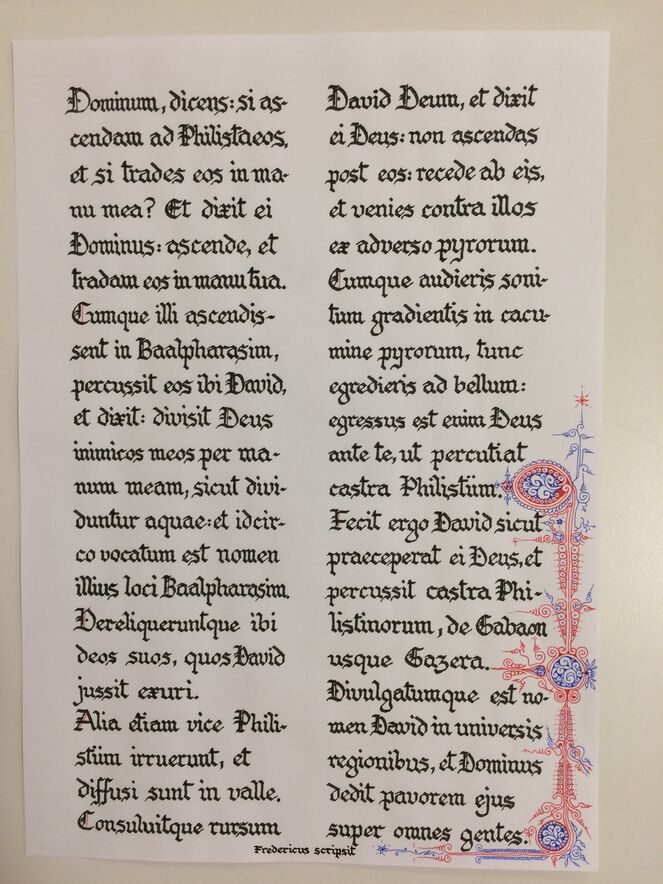 Dominum, dicens: si as-
cendam ad Philistaeos,
et si trades eos in ma-
nu mea? Et dixit ei
Dominus: ascende, et
tradam eos in manu tua.
Cumque illi ascendis-
sent in Baalpharasim,
percussit eos ibi David,
et dixit: divisit Deus
inimicos meos per ma-
num meam, sicut divi-
duntur aquae: et idcir-
co vocatum est nomen
illius loci Baalpharasim.
Dereliqueruntque ibi
deos suos, quos David
jussit exuri.
Alia etiam vice Phili-
stiim irruerunt, et
diffusi sunt in valle.
Consuluitque rursum
David Deum, et dixit
ei Deus: non ascendas
post eos: recede ab eis,
et venies contra illos
ex adverso pyrorum.
Cumque audieris soni-
tum gradientis in cacu-
mine pyrorum, tunc
egredieris ad bellum:
egressus est enim Deus
ante te, ut percutiat
castra Philistiim.
Fecit ergo David sicut
praeceperat ei Deus, et
percussit castra Phi-
listinorum, de Gabaon
usque Gazera.
Divulgatumque est no-
men David in universis
regionibus, et Dominus
dedit pavorem ejus
super omnes gentes.
Fredericus scripsit